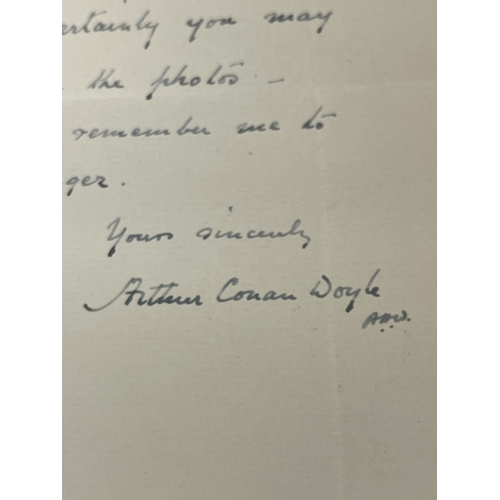 ertainly you may
the photos –
remember me to
ger.
Yours sincerely
Arthur Conan Doyle
A.H.W.